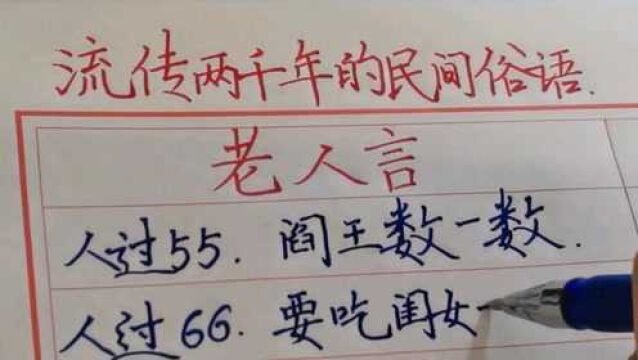 流传两千年的民间俗语.
老人言
人过55. 阎王数一数.
人过66. 要吃闺女